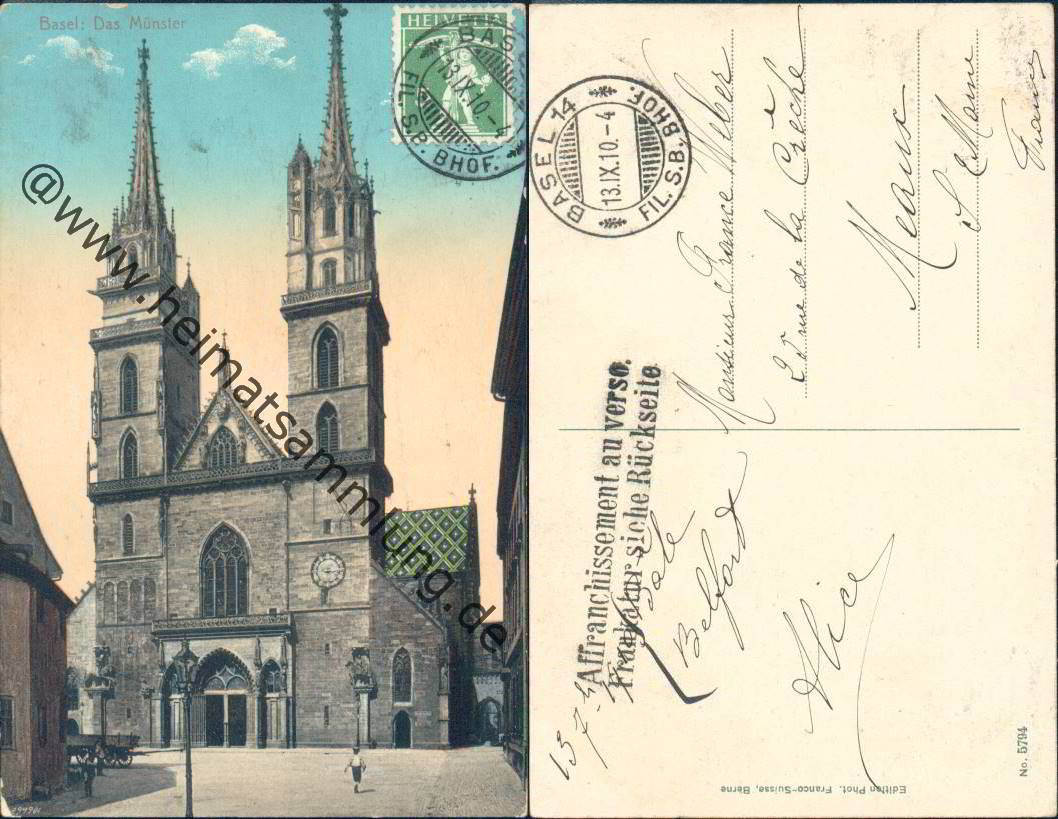 Basel: Das Münster
HELVETIA
BASEL
13.IX.10.-4
FIL. S.B. BHOF.
@www.heimatsammlung.de
BASEL 14
13.IX.10.-4
FIL. S.B., BHOF.
Affranchissement au verso.
Frankatur siehe Rückseite
Monsieur France Weber
rue de la Creche
Meaux
S. et Marne
France
13-7
Bale
Belford
Alice
No. 5794
Edition Phot. Franco-Suisse, Berne